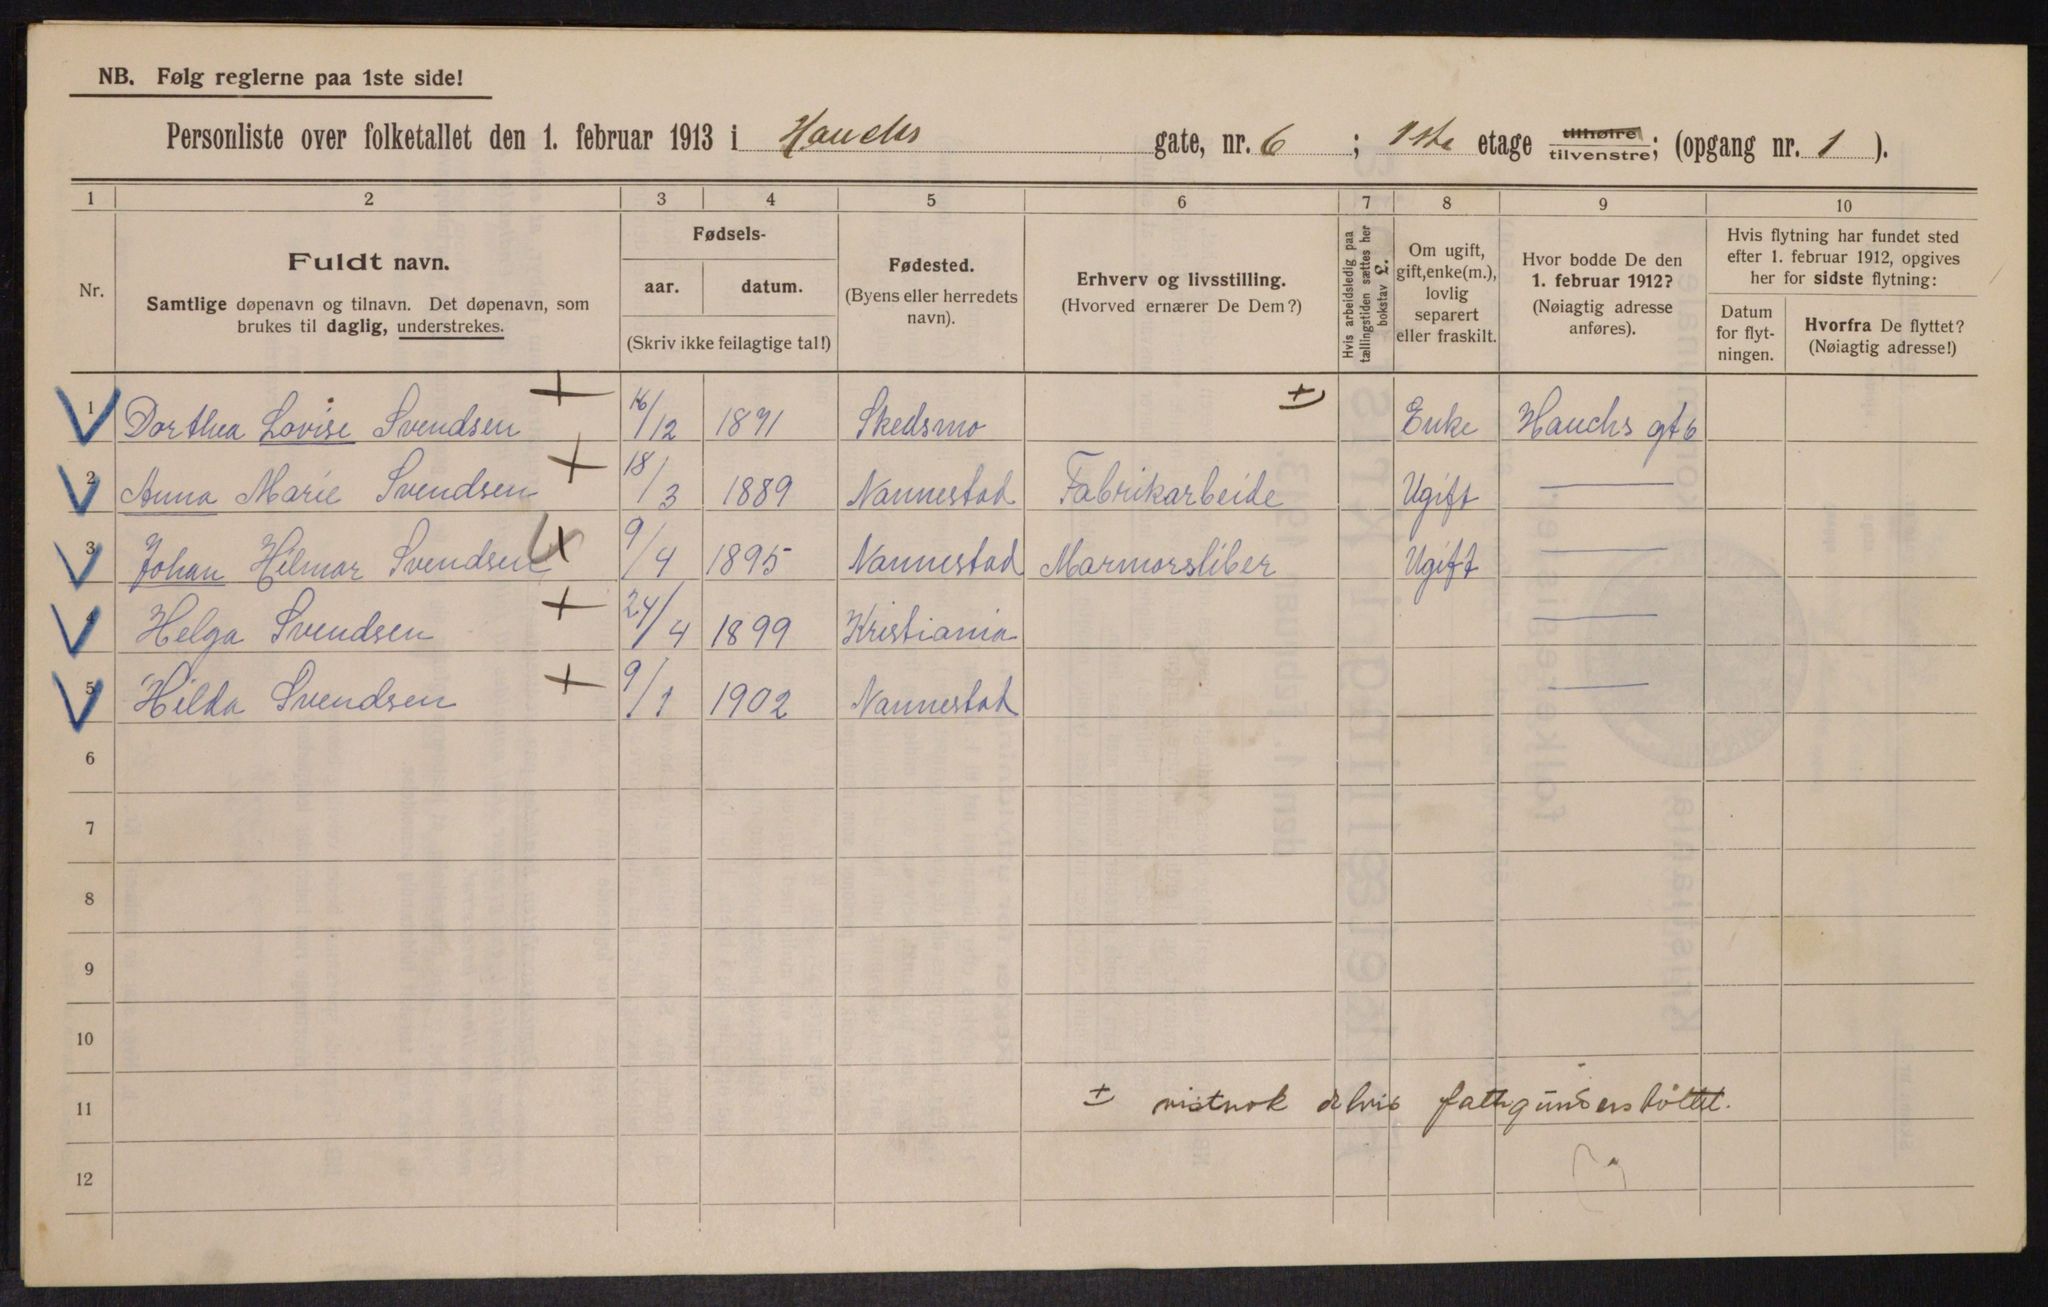 NB. Følg reglerne paa 1ste side!
Personliste over folketallet den 1. februar 1913 i Hauchs gate, nr. 6 ; 1ste etage tilhøire tilvenstre; (opgang nr. 1 ).
1 2 3 4 5 6 7 8 9 10
Nr.
Fuldt navn.
Samtlige døpenavn og tilnavn. Det døpenavn, som
brukes til daglig, understrekes.
Fødsels-
aar. datum.
(Skriv ikke feilagtige tal!)
Fødested.
(Byens eller herredets
navn).
Erhverv og livsstilling.
(Hvorved ernærer De Dem?)
Hvis arbeidsledig paa
tællingstiden sættes her
bokstav L.
Om ugift,
gift, enke(m.),
lovlig
separert
eller fraskilt.
Hvor bodde De den
1. februar 1912?
(Nøiagtig adresse
anføres).
Hvis flytning har fundet sted
efter 1. februar 1912, opgives
her for sidste flytning:
Datum
for flyt-
ningen.
Hvorfra De flyttet?
(Nøiagtig adresse!)
1 Dorthea Lovise Svendsen + 16/12 1871 Skedsmo ± Enke Hauchs gt 6
2 Anna Marie Svendsen + 18/3 1889 Nannestad Fabrikarbeide Ugift —
3 Johan Hilmar Svendsen + 9/4 1895 Nannestad Marmorsliber Ugift —
4 Helga Svendsen + 24/4 1899 Kristiania —
5 Hilda Svendsen + 9/1 1902 Nannestad —
6
7
8
9
10
11 ± vistnok delvis fattigunderstøttet.
12